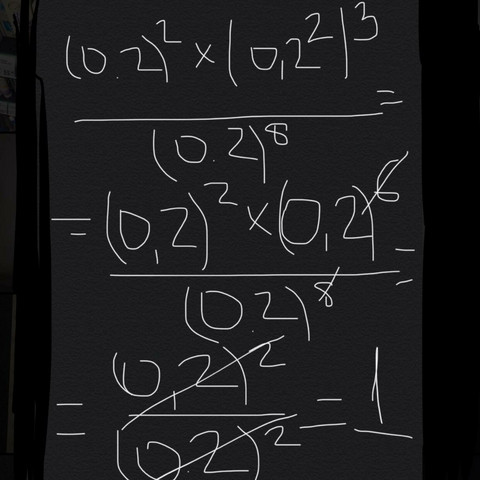 (0.2)² × (0,2²)³ =
(0.2)⁸
= (0,2)² × (0,2)⁶ =
(0.2)⁸
= (0,2)² = 1
(0.2)²